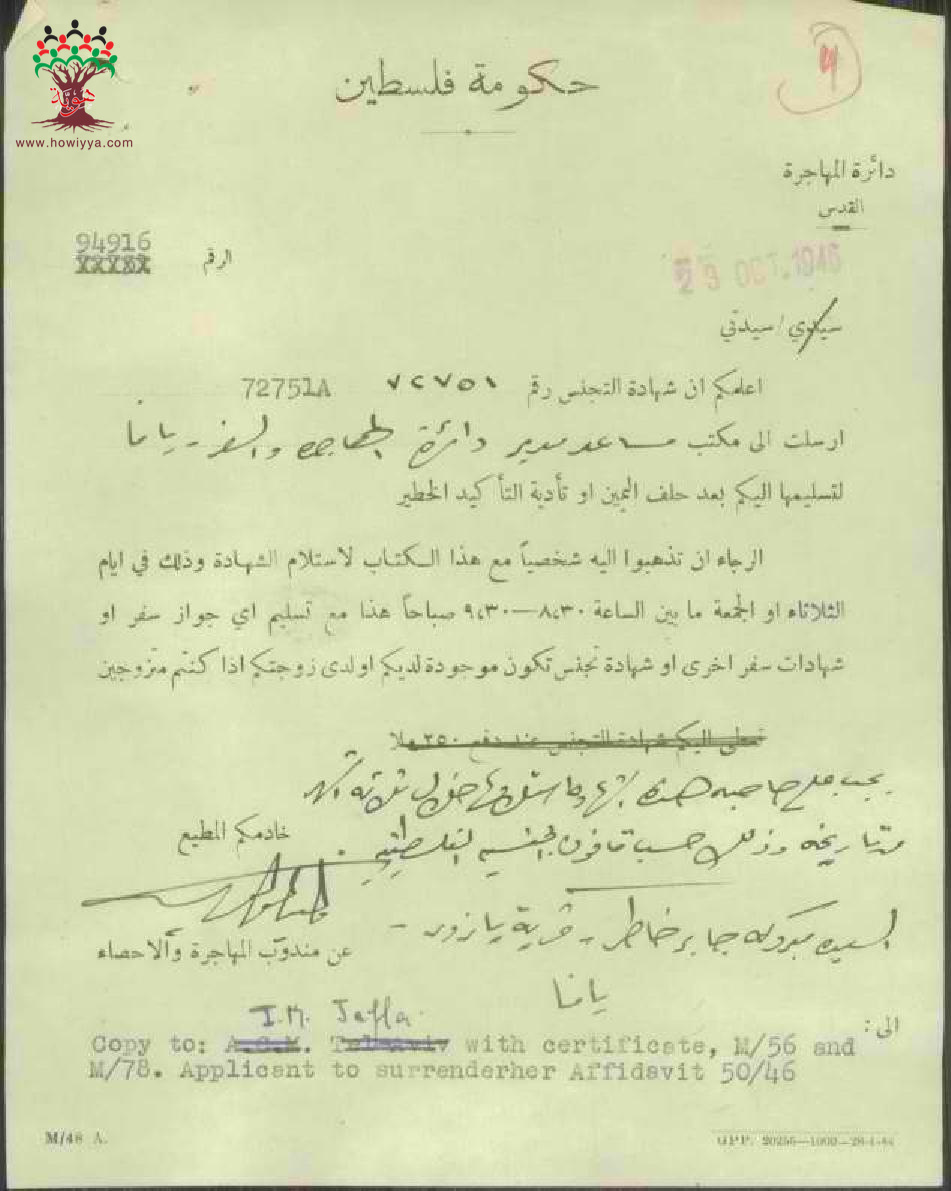 هوية
www.howiyya.com
4
حكومة فلسطين
دائرة المهاجرة
القدس
94916
الرقم
29 OCT. 1946
سيدي / سيدتي
اعلمكم ان شهادة التجنس رقم ٧٢٧٥١ 72751A
ارسلت الى مكتب مساعد مدير دائرة المهاجرة والسفر - يافا
لتسليمها اليكم بعد حلف اليمين او تأدية التأكيد الخطير
الرجاء ان تذهبوا اليه شخصياً مع هذا الكتاب لاستلام الشهادة وذلك في ايام
الثلاثاء او الجمعة ما بين الساعة ٨،٣٠—٩،٣٠ صباحاً هذا مع تسليم اي جواز سفر او
شهادات سفر اخرى او شهادة تجنس تكون موجودة لديكم او لدى زوجتكم اذا كنتم متزوجين
تعطى اليكم شهادة التجنس عند دفع ٢٥٠ ملا
يجب على صاحبة هذه خلال ثلاثة اشهر
من تاريخه وذلك حسب قانون الجنسية الفلسطينية .
خادمكم المطيع
السيدة مبروكه جابر خاطر - قرية يازور -
يافا
عن مندوب المهاجرة والاحصاء
الى :
I.M. Jaffa.
Copy to: A.C.M. Tel-Aviv with certificate, M/56 and
M/78. Applicant to surrenderher Affidavit 50/46
M/48 A.
GPP. 20256—1000—28-4-44